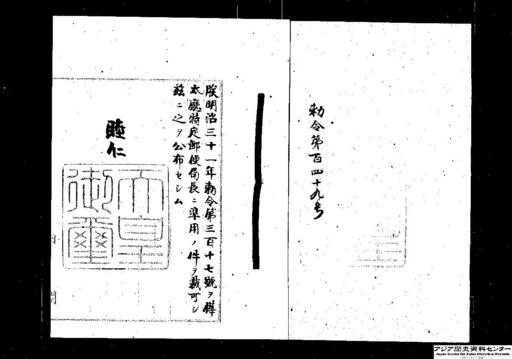 勅令第百四十九号
朕明治三十一年勅令第三百十七號ヲ樺
太廳特定郵便局長ニ準用ノ件ヲ裁可シ
茲ニ之ヲ公布セシム
睦仁
天皇
御璽
内閣
アジア歴史資料センター
Japan Center for Asian Historical Records